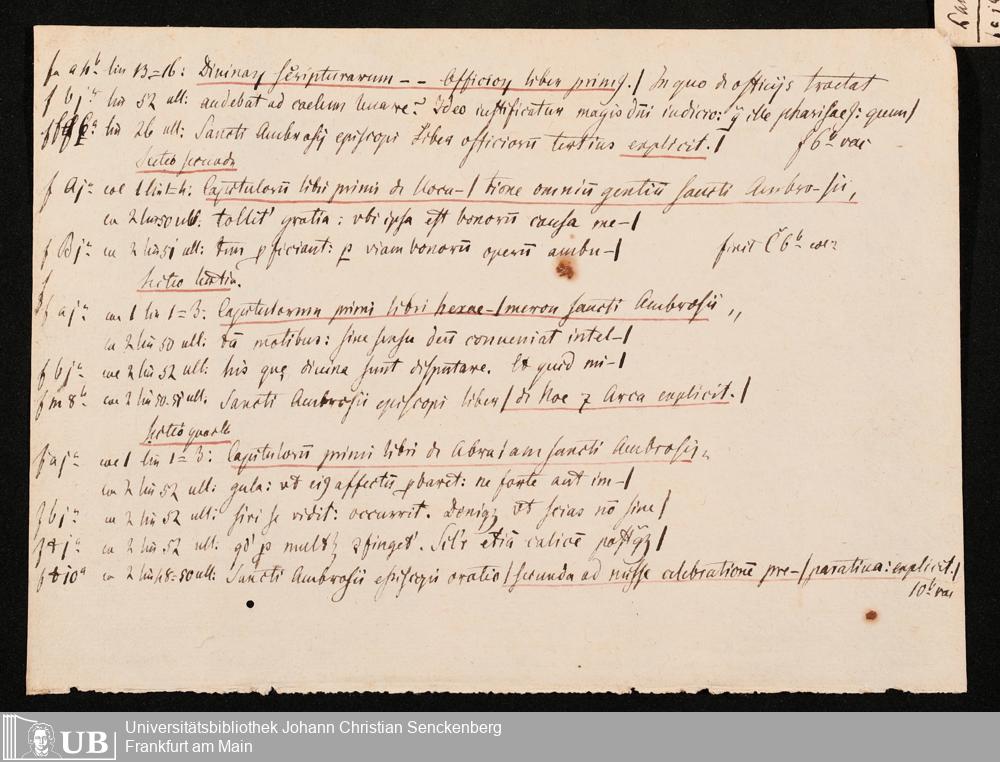 f. a 4b lin 13=16: Diuinaꝝ scripturarum -- Officioꝝ liber primꝰ./ In quo de officijs tractat
f bjª lin 52 ult: audebat ad coelum leuare? Ideo iustificatur magis dñi iudicio: ille phariseꝰ: quem/
lin 26 ult: Sancti Ambrosij episcopi Liber officiorū tertius explicit./ f 6b vac
Sectio secunda
f Ajª col 1 lin 1=4: Capitulorū libri primi de Uoca-/tione omniū gentiū sancti Ambro-sii,
col 2 lin 50 ult: tollit' gratia: vbi ipsa est bonorū causa me-/
f Bjª col 2 lin 51 ult: ꝑficiant: ꝑ viam bonorū operū ambu-/ finit C 6b col 2
Sectio tertia.
f ajª col 1 lin 1=3: Capitulorum primi libri hexae-/meron sancti Ambrosii,,
col 2 lin 50 ult: motibus: sine sensu deū conueniat intel-/
f bjª col 2 lin 52 ult: his quę diuina sunt disputare. Et quid mi-/
f m 8b col 2 lin 50-51 ult. Sancti Ambrosii episcopi liber/ de Noe ⁊ Arca explicit./
Sectio quarta
f ajª col 1 lin 1=3: Capitulorū primi libri de Abraam sancti Ambrosij,,
col 2 lin 52 ult: gula: vt eiꝰ affectū ꝓbaret: ne forte aut im-/
f bjª col 2 lin 52 ult: siri se vidit: occurrit. Deniqꝫ vt scias nō sine/
col 2 lin 52 ult: etiā calicē
col 2 lin 48=50 ult: Sancti Ambrosii episcopi oratio/ secunda ad misse celebrationē pre-/paratiua: explicit./
10b vac
Universitätsbibliothek Johann Christian Senckenberg
Frankfurt am Main
UB